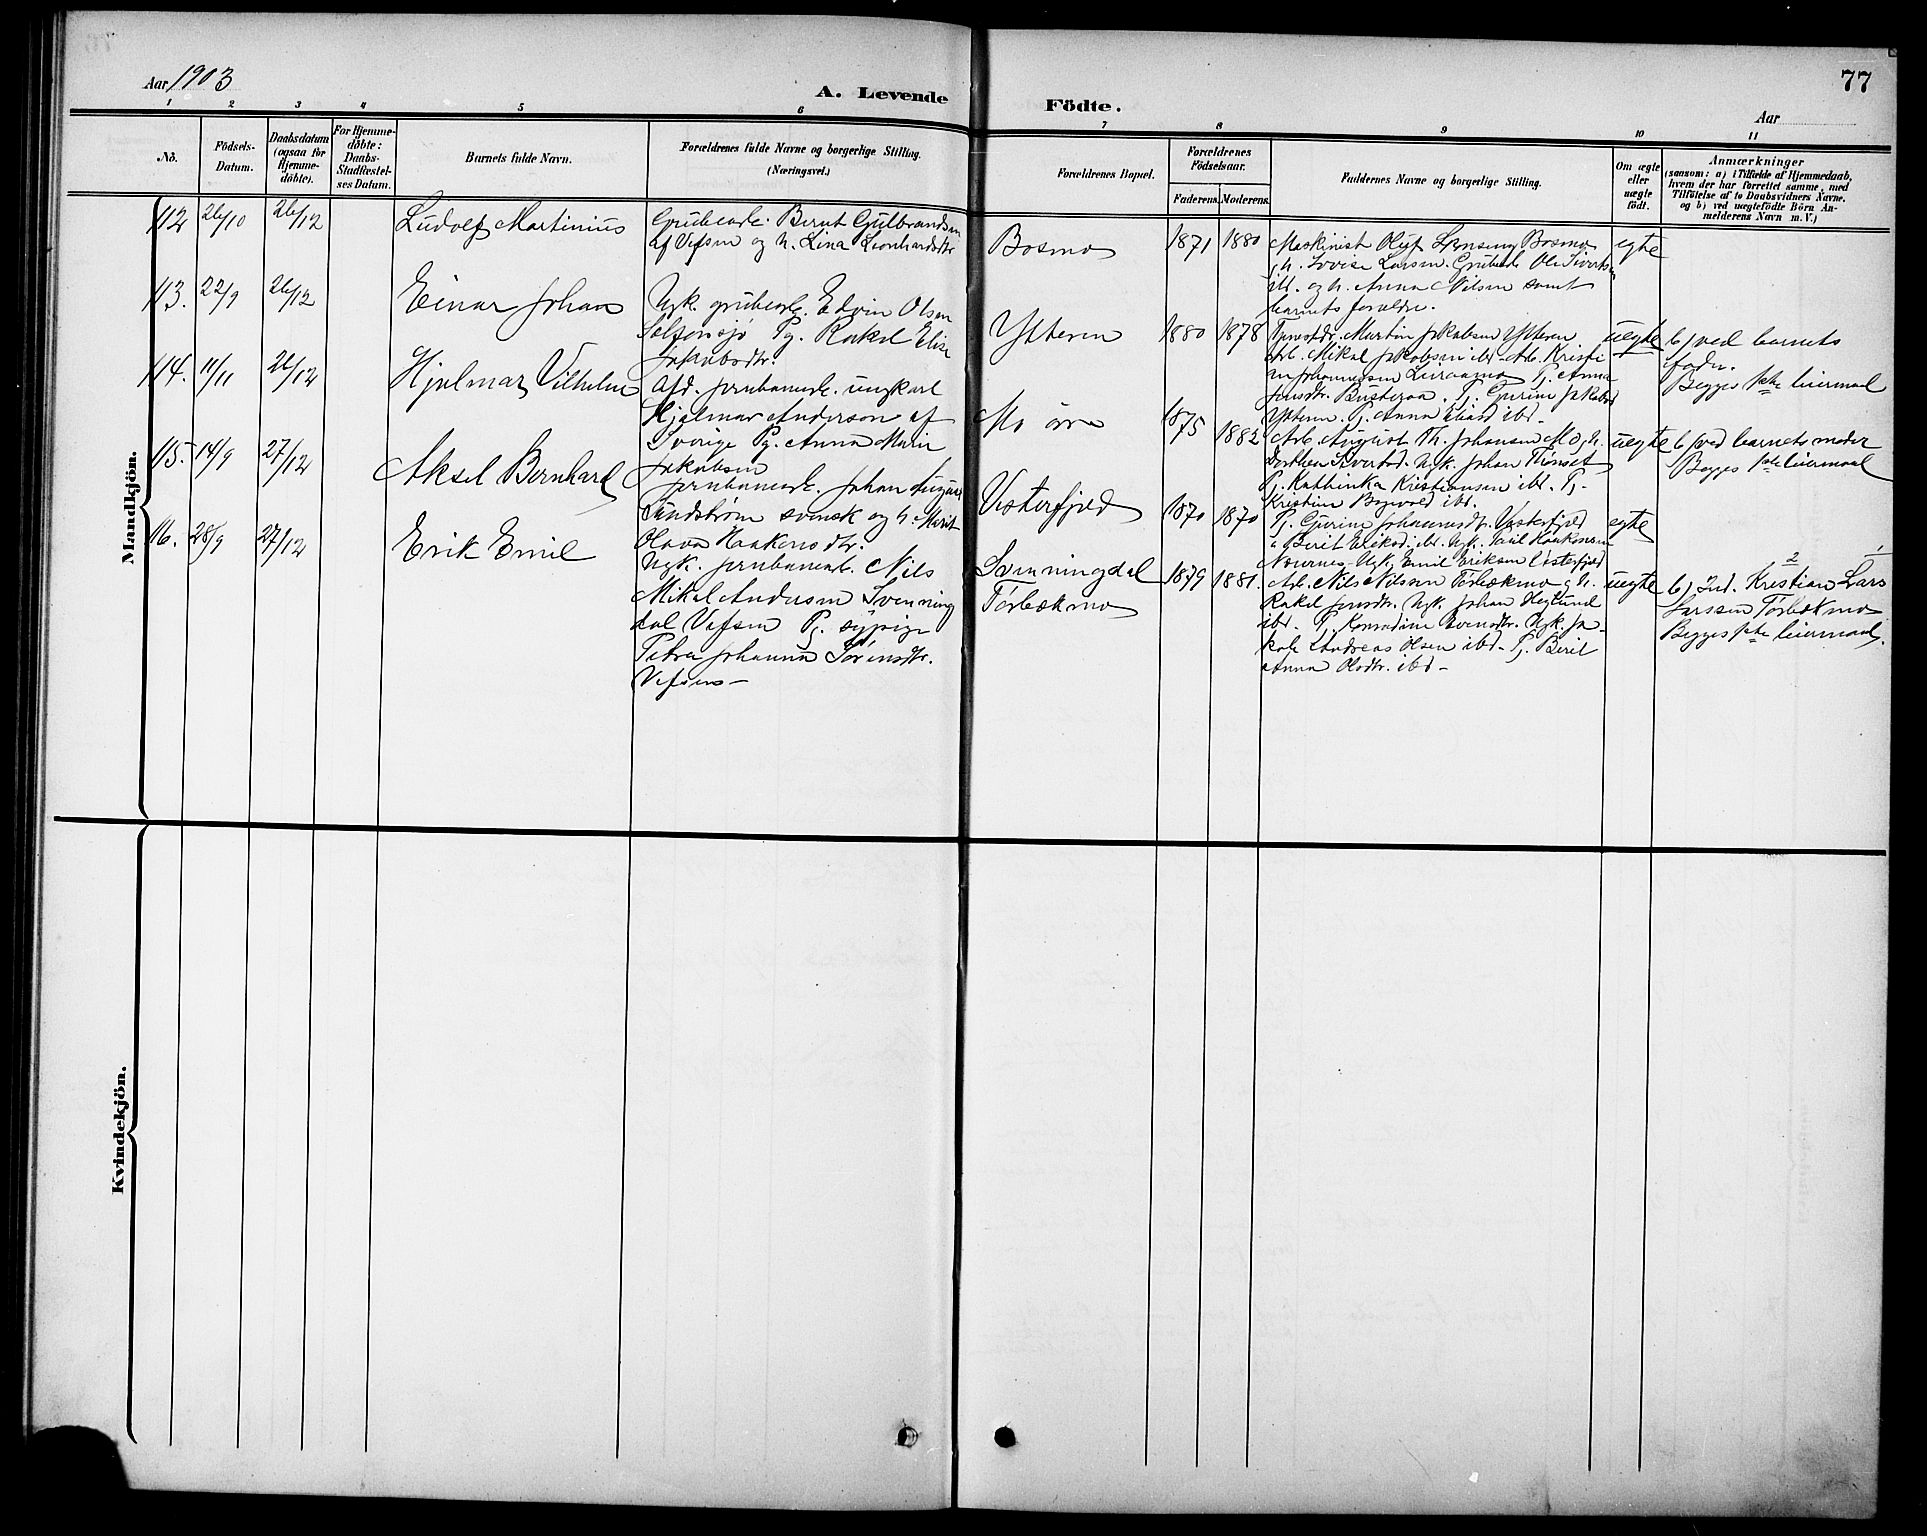 77
Aar 1903
A. Levende Födte.
Aar
1 2 3 4 5 6 7 8 9 10 11
No.
Födsels-
Datum.
Daabsdatum
(ogsaa for
Hjemme-
döbte).
For Hjemme-
döbte:
Daabs-
Stadfæstel-
ses Datum.
Barnets fulde Navn.
Forældrenes fulde Navne og borgerlige Stilling.
(Næringsvei.)
Forældrenes Bopæl.
Forældrenes
Födselsaar.
Faderens. Moderens.
Faddernes Navne og borgerlige Stilling.
Om ægte
eller
uægte
födt.
Anmærkninger
(saasom: a) i Tilfælde af Hjemmedaab,
hvem der har forrettet samme, med
Tilföielse af to Daabsvidners Navne,
og b) ved uægtefödte Börn An-
melderens Navn m. V.)
Mandkjön.
112 26/10 26/12
Ludolf Martinius
Grubearb. Bernt Gulbrandsen
af Vefsen og h. Lina Leonhardsdtr
Bosmo
1871 1880
Maskinist Oluf Lorensen Bosmo
og h. Lovise Larsen. Grubearb. Ole Sivertsen
ibd. og h. Anna Nilsen samt
barnets forældre.
egte
113. 22/9 26/12
Einar Johan
Ugk. grubearb. Edvin Olsen
Selfonsjö Pg. Rakel Elise
Jakobsdtr.
Ytteren
1880 1878
Martin Jakobsen Ytteren
Arb. Mikal Jakobsen ibd. Arb. Kristi
an Johannessen Leiraamo Pg. Anna
Jensdtr. Busteraa. Pg. Gurine Jakobsd
Ytteren. Pg. Anna Eliasd ibd.
uegte
b) ved barnets
fader.
Begges 1ste leiermaal
114. 11/11 26/12
Hjalmar Vilhelm
Afd. jernbanearb. ungkarl
Hjalmar Anderson af
Sverige Pg. Anna Marie
Jakobsen
Mo öre
1875 1882
Arb. August Th. Johansen Mo og h.
Dorthea Sivertsd. Ugk. Johan Tönset
Pg. Kathinka Kristiansen ibd. Pg.
Kristine Bogvold ibd.
uegte
b) ved barnets moder
Begges 1ste leiermaal
115. 14/9 27/12
Aksel Bernhard
Jernbanearb. Johan August
Sundström svensk og h. Marit
Olava Haakensdtr.
Vesterfjeld
1870 1870
Pg. Gurine Johannesdtr. Vesterfjeld
Pg. Berit Eriksd. ibd. Ugk. Paul Haakensen
Nournes. Ugk. Emil Eriksen Vesterfjeld
egte
116. 28/9 27/12
Erik Emil
Ugk. jernbanearb. Nils
Mikal Andersen Svenning
dal Vefsen Pg. sypige
Petra Johanna Sörensdtr.
Vefsen —
Svenningdal
Torbekmo
1879 1881.
Arb. Nils Nilssen Torbekmo og h.
Rakel Jensdtr. Ugk. Johan Heglund
ibd. Pg. Konradine Svensdtr. Ugk. Ja-
kob Andreas Olsen ibd. Pg. Berit
Anna Olsdtr. ibd —
uegte
2 1
b) Ind. Kristian Lars
Larssen Torbekmo
Begges 1ste leiermaal.
Kvindekjön.